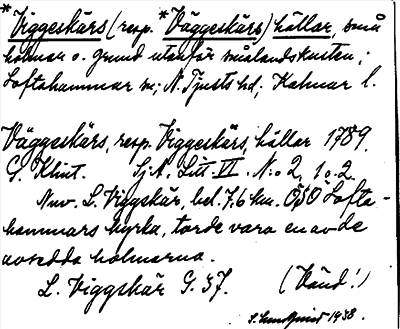 *Viggeskärs (resp. *Väggeskärs) hällar, små
holmar o. grund utanför smålandskusten;
Loftahammar sn; N. Tjusts hd; Kalmar l.
Väggeskärs, resp. Viggeskärs, hällar 1789.
G. Klint. Sj.A. Litt. VI. N:o 2, 1 o. 2.
Nuv. L. Viggskär, bel. 7.6 km. ÖSÖ Lofta-
hammars kyrka, torde vara en av de
avsedda holmarna.
L. Viggskär G. 37. (Vänd!)
S. Lundqvist 1938.